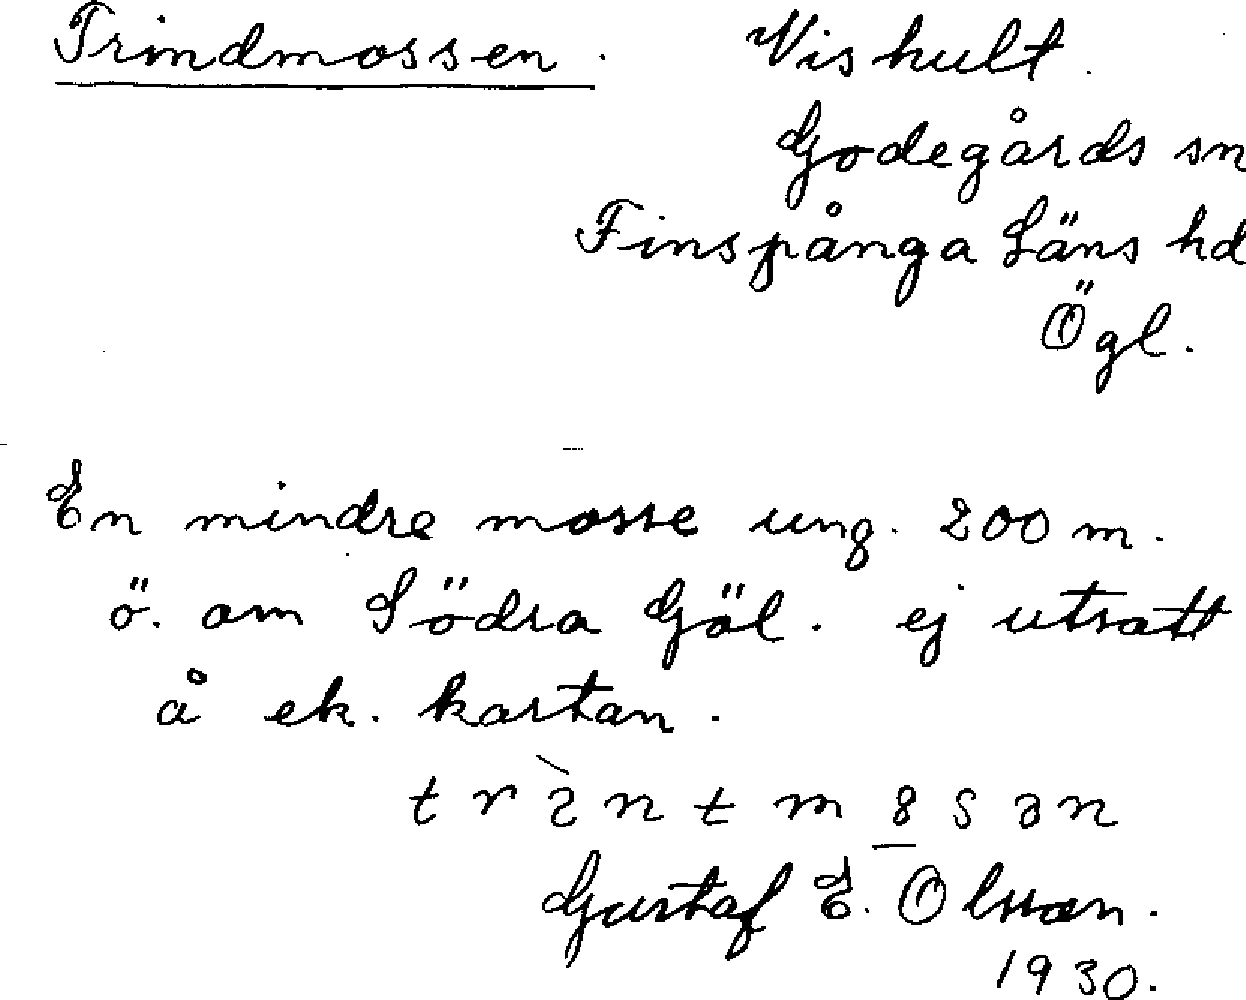 Trindmossen. Viskult.
Godegårds sn
Finspånga Läns hd
Ögl.
En mindre mosse ung. 200 m.
ö. om Södra Göl. ej utsatt
å ek. kartan.
Gustaf E. Olsson.
1930.